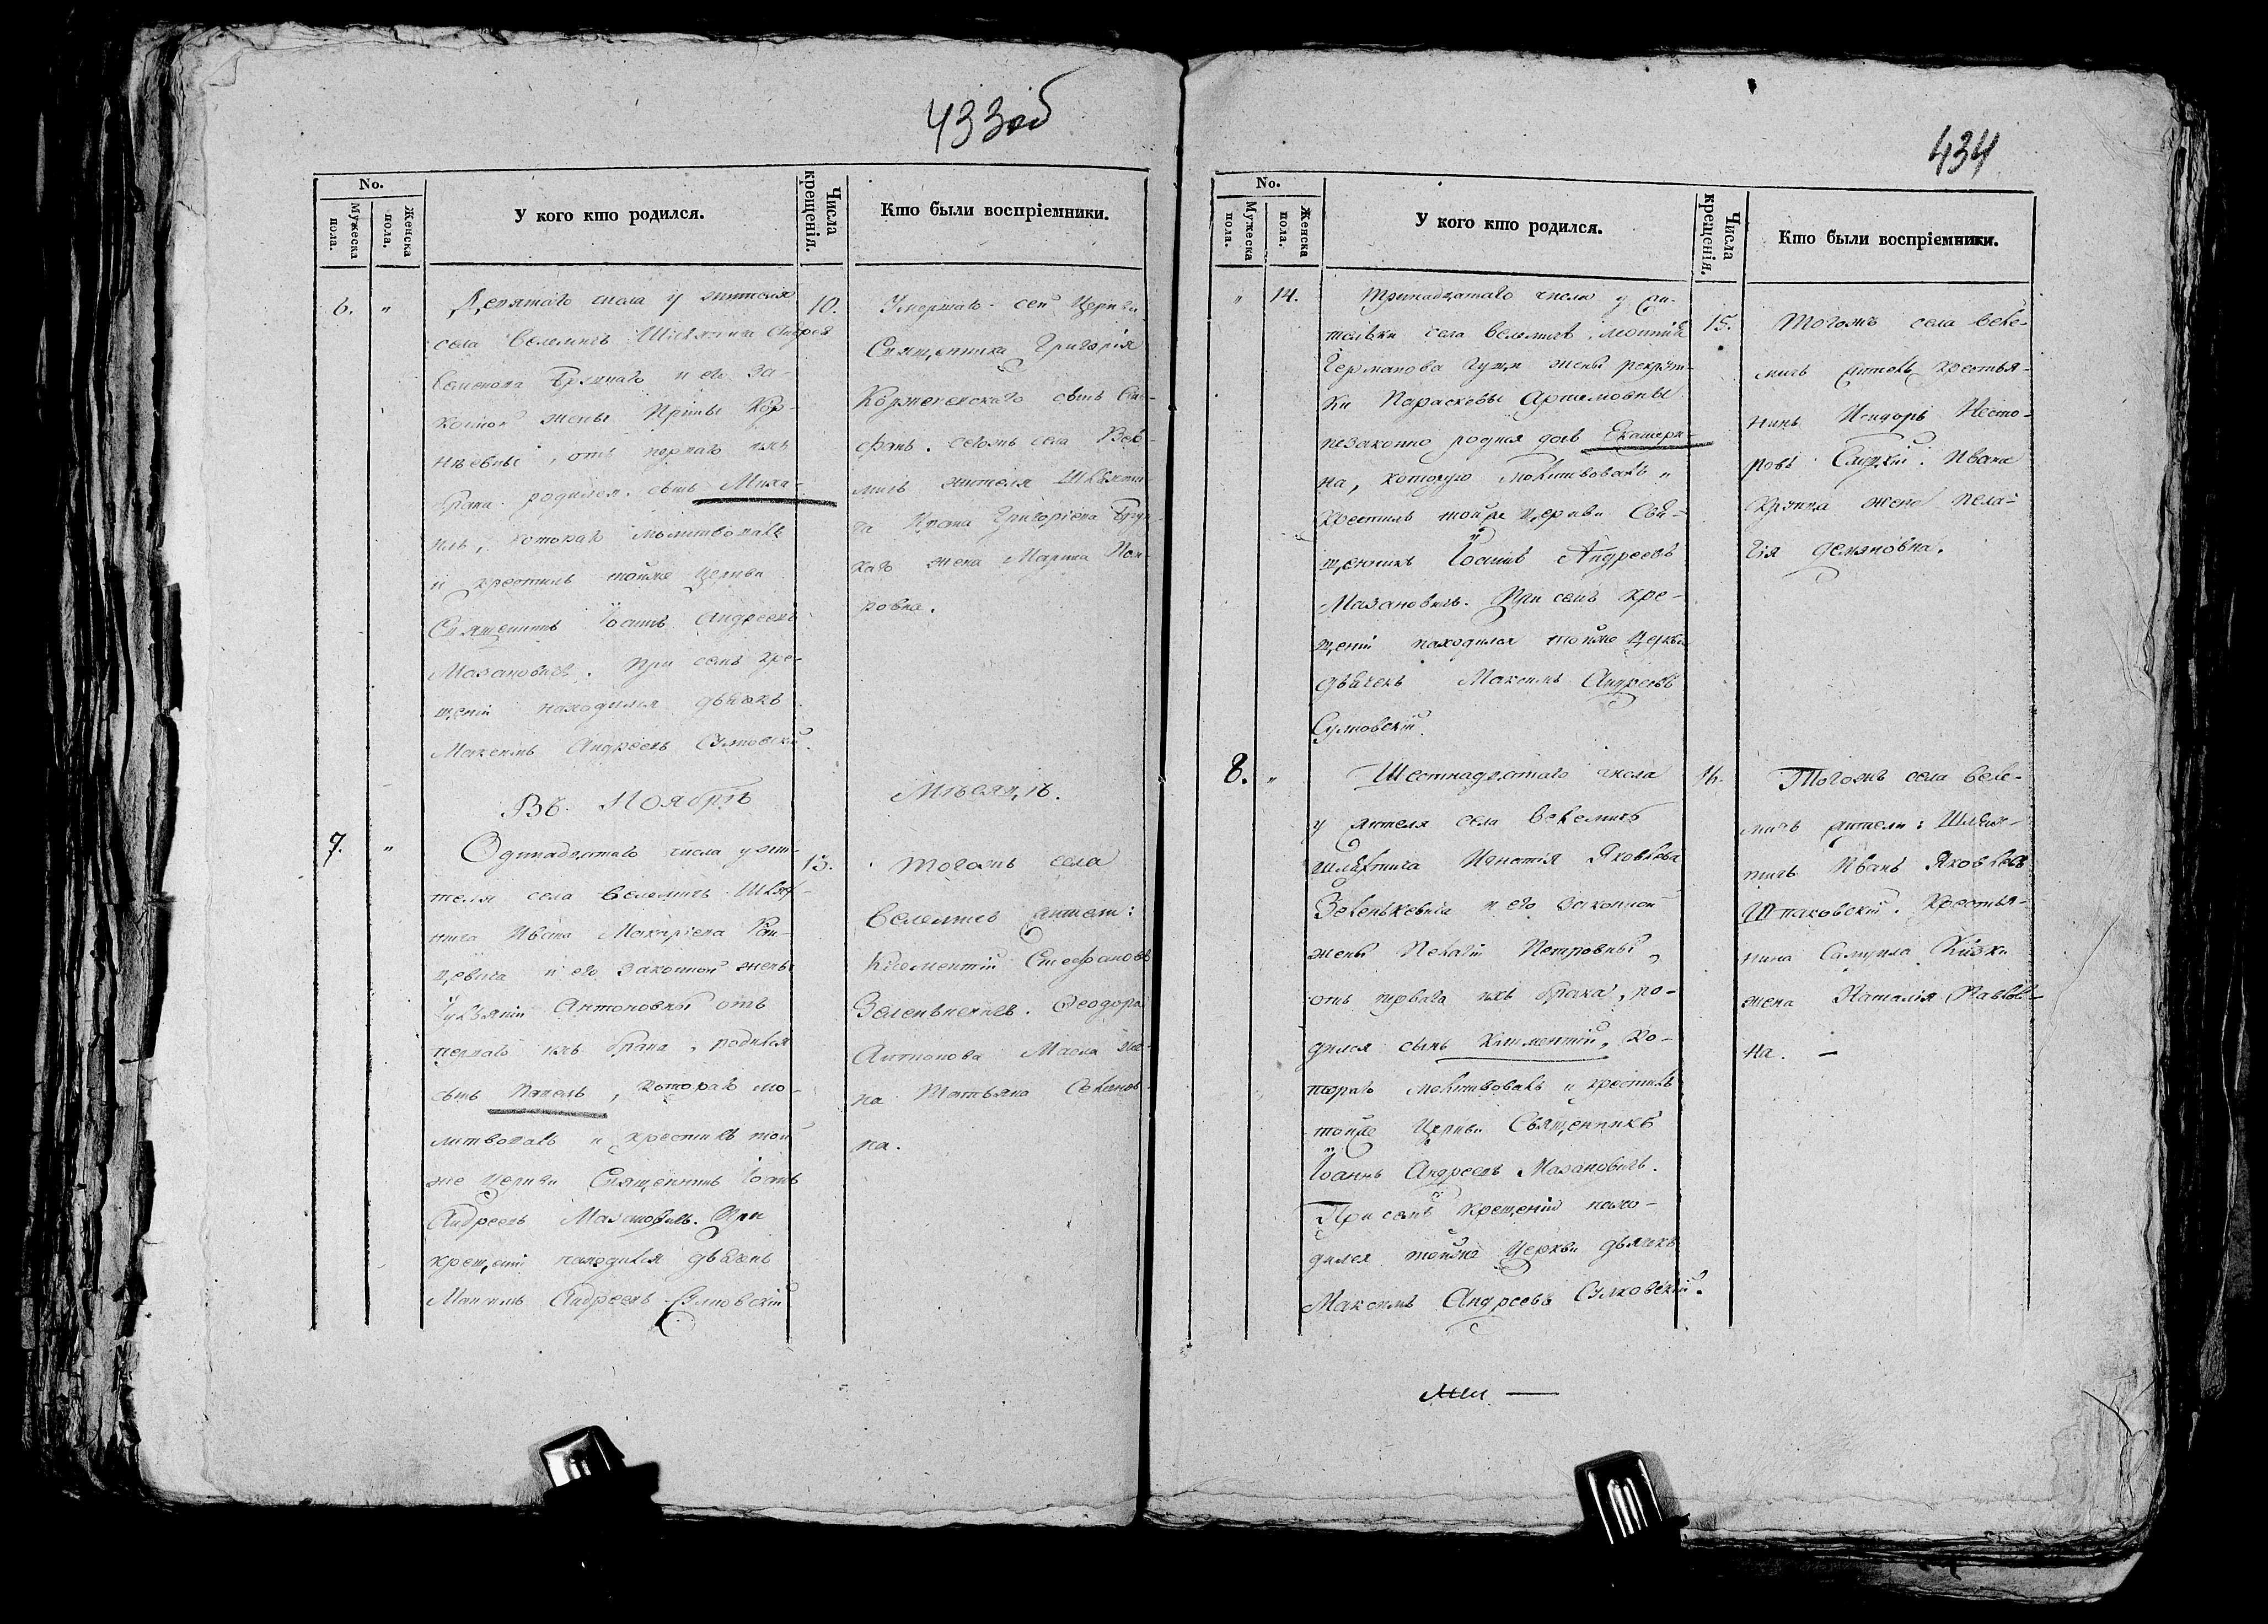 433об
No.
Мужеска пола.
Женска пола.
У кого кто родился.
Числа крещенія.
Кто были воспріемники.
6. „
Девятаго числа у жителя
села Велемичь Шляхтича Андрея
Семенова и его за-
конной жены Ирины Кор-
нѣевны, отъ перваго ихъ
брака родился сынъ Миха-
илъ, котораго молитвовалъ
и крестилъ тойже Церкви
Священникъ Іоаннъ Андреевъ
Мазановичъ. При семъ кре-
щеніи находился дьячекъ
Максимъ Андреевъ Сулковскій.
10.
Умершаго сей Церкви
Священника Григорія
Корженевскаго сынъ Сте-
фанъ. Сегожъ села Веле-
мичь жителя Шляхти-
ча Ивана Григоріева
жена Марина
ровна.
Въ Ноябрѣ
Мѣсяцѣ.
7. „
Одинадцатаго числа у жи-
теля села Велемичь Шлях-
тича Ивана Макаріева
цевича и его законной жены
Антоновны отъ
перваго ихъ брака, родился
сынъ Павелъ, котораго мо-
литвовалъ и крестилъ той
же Церкви Священникъ Іоаннъ
Андреевъ Мазановичъ. При
крещеніи находился дьячекъ
Максимъ Андреевъ Сулковскій
13.
Тогожъ села
Велемичь жители:
Климентій Стефановъ
Зеленкевичь. Феодора
Антонова Масла же-
на Татьяна Семенов-
на.
434
No.
Мужеска пола.
Женска пола.
У кого кто родился.
Числа крещенія.
Кто были воспріемники.
„ 14.
Тринадцатаго числа у жи-
тельки села Велемичь
Германова жены рекрут-
ки Параскевы Артемовны
незаконно родися дочь Екатери-
на, которую молитвовалъ и
крестилъ тойже Церкви Свя-
щенникъ Іоаннъ Андреевъ
Мазановичъ. При семъ кре-
щеніи находился тойже Церкви
дьячекъ Максимъ Андреевъ
Сулковскій.
15.
Тогожъ села Веле-
мичь житель крестья-
нинъ Исидоръ Несте-
ровъ Ивана
жена Пела-
гія Демяновна.
8. „
Шестнадцатаго числа
у жителя села Велемичь
Шляхтича Игнатія Яковлева
Зеленкевича и его законной
жены Пелагіи Петровны,
отъ перваго ихъ брака, ро-
дился сынъ Климентій, ко-
тораго молитвовалъ и крестилъ
тойже Церкви Священникъ
Іоаннъ Андреевъ Мазановичъ.
При семъ крещеніи нахо-
дился тойже Церкви дьячекъ
Максимъ Андреевъ Сулковскій.
16.
Тогожъ села Веле-
мичь жители: Шлях-
тичъ Иванъ Яковлевъ
Шпаковскій. Крестья-
нина Самуила
жена Наталія Павлов-
на. —